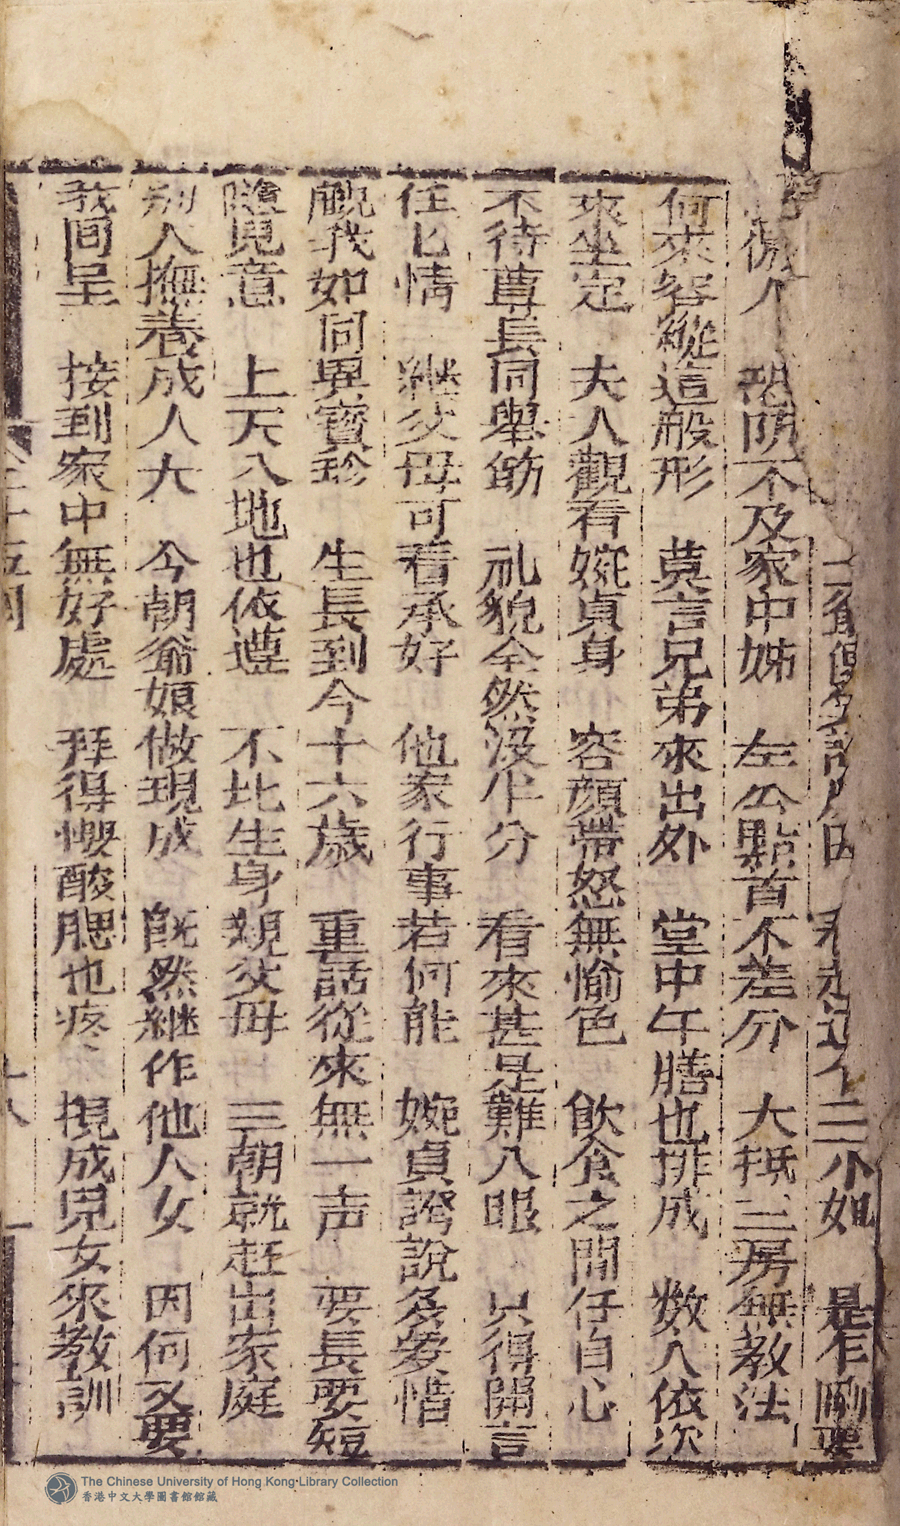 三小姐 是乍
傲人 恐防不及家中姊 左公點首不差分 大抵三房無教法
何來容縱這般形 莫言兄弟來出外 堂中午膳也排成 數人依次
來坐定 夫人觀看婉貞身 容顏帶怒無愉色 飲食之間仔自心
不待尊長同舉筯 礼貌全然沒半分 看來甚是難入眼 只得開言
任乜情 継父母可看承好 他家行事若何能 婉貞謌說多愛惜
覷我如同異寶珍 生長到今十六歲 重話從來無一声 要長要短
隨兒意 上天入地也依遵 不比生身親父母 三朝就赶出家庭
別人撫養成人大 今朝爺娘做現成 既然継作他人女 因何又要
我囘呈 接到家中無好處 拜得腰酸腮也疼 現成兒女來教訓
十八
The Chinese University of Hong Kong Library Collection
香港中文大學圖書館館藏